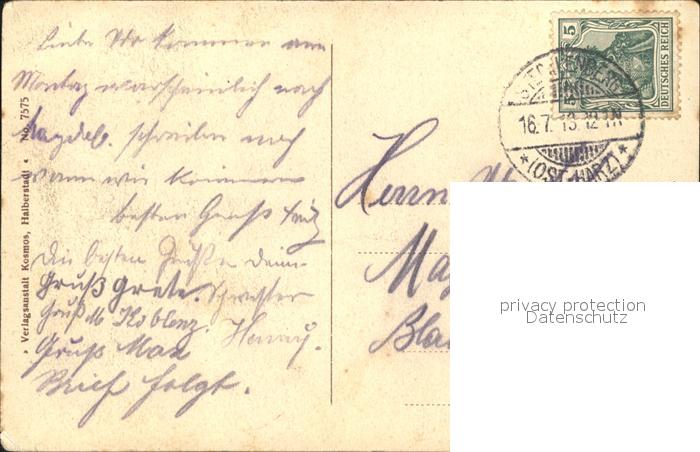 Liebe Wir kommen am
Montag warscheinlich nach
Magdeb. schreiben noch
wann wir kommen
besten Gruß Fritz
Die besten Grüße deine
Gruß Grete. Schwester
Gruß M Koblenz. Henny.
Gruß Max
Brief folgt.
» Verlagsanstalt Kosmos, Halberstadt « No. 7575
5
DEUTSCHES REICH
STECKLENBERG
16.7.13.12
* (OST-HARZ) *
Herrn
Mag
Bla
privacy protection
Datenschutz